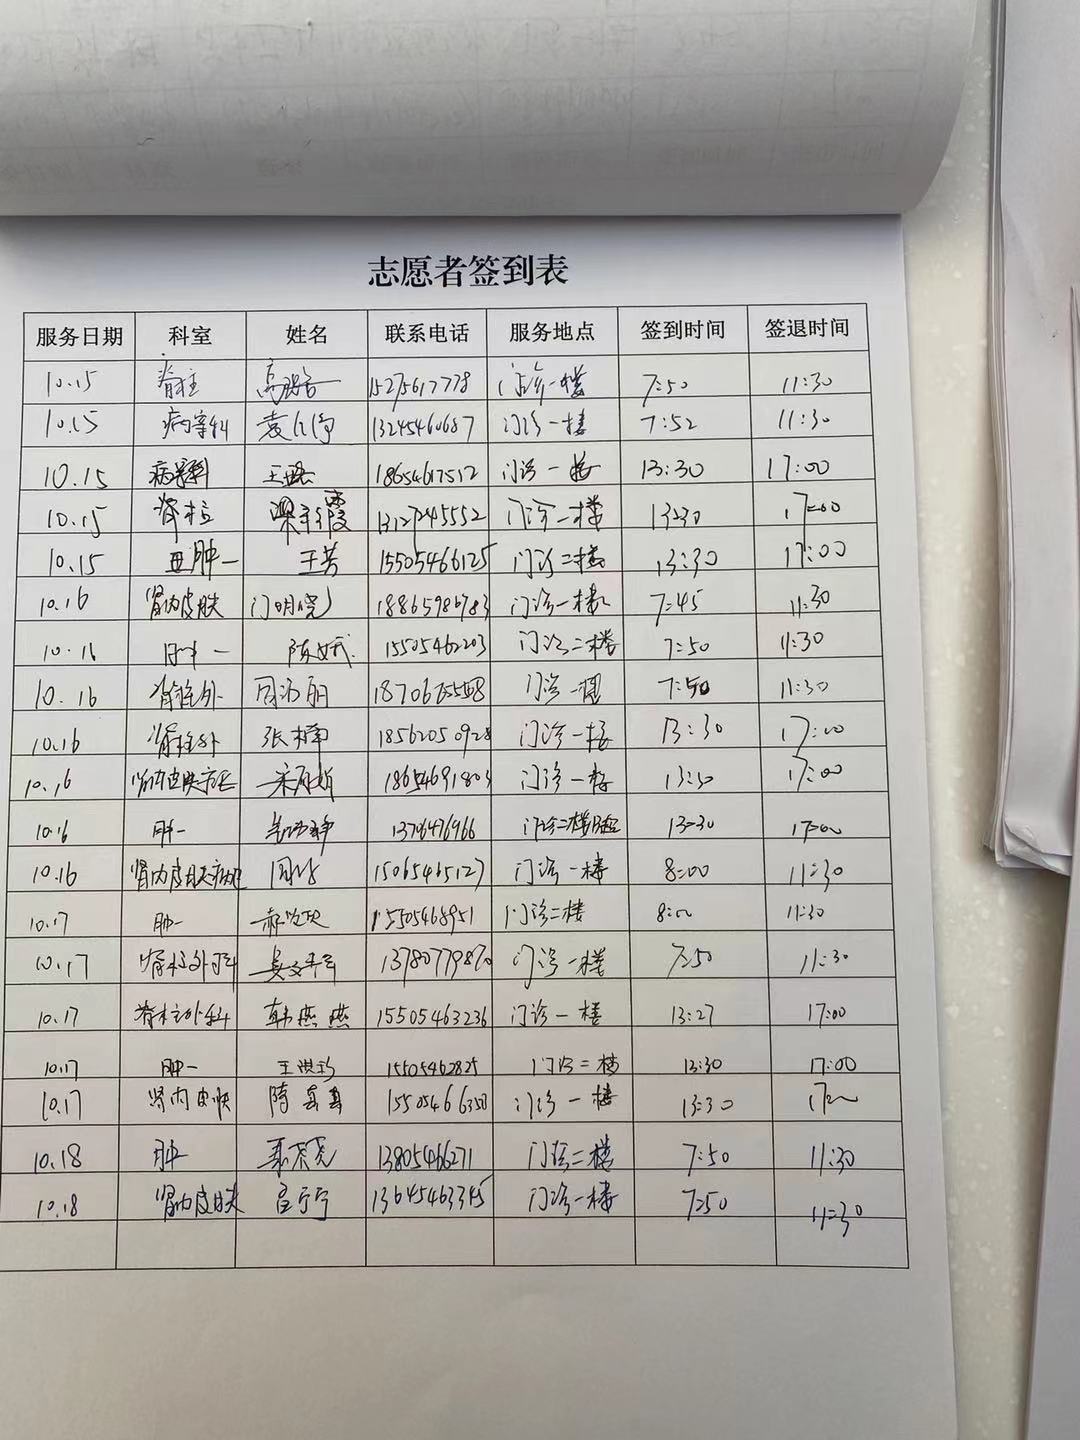 志愿者签到表
服务日期 科室 姓名 联系电话 服务地点 签到时间 签退时间
10.15 脊柱 15275617778 门诊一楼 7:50 11:30
10.15 病案科 13245460687 门诊一楼 7:52 11:30
10.15 病案科 18654617512 门诊一楼 13:30 17:00
10.15 脊柱 13127245552 门诊一楼 13:30 17:00
10.15 王芳 15505466125 门诊二楼 13:30 17:00
10.16 肾内皮肤 门明晓 18865986783 门诊一楼 7:45 11:30
10.16 肿一 15505462203 门诊二楼 7:50 11:30
10.16 脊柱外 门诊一楼 7:50 11:30
10.16 脊柱外 张楠 18562050928 门诊一楼 13:30 17:00
10.16 18654691803 门诊一楼 13:30 17:00
10.16 肿一 1376476966 门诊二楼 13:30 17:00
10.16 15065465127 门诊一楼 8:00 11:30
10.17 肿一 15505468951 门诊二楼 8:00 11:30
10.17 脊柱外科 13780779870 门诊一楼 7:50 11:30
10.17 脊柱外科 韩燕燕 15505463236 门诊一楼 13:27 17:00
10.17 肿一 王洪珍 15505462825 门诊二楼 13:30 17:00
10.17 肾内皮肤 隋真真 15505466358 门诊一楼 13:30 17:00
10.18 肿一 13805466271 门诊二楼 7:50 11:30
10.18 肾内皮肤 13645463345 门诊一楼 7:50 11:30